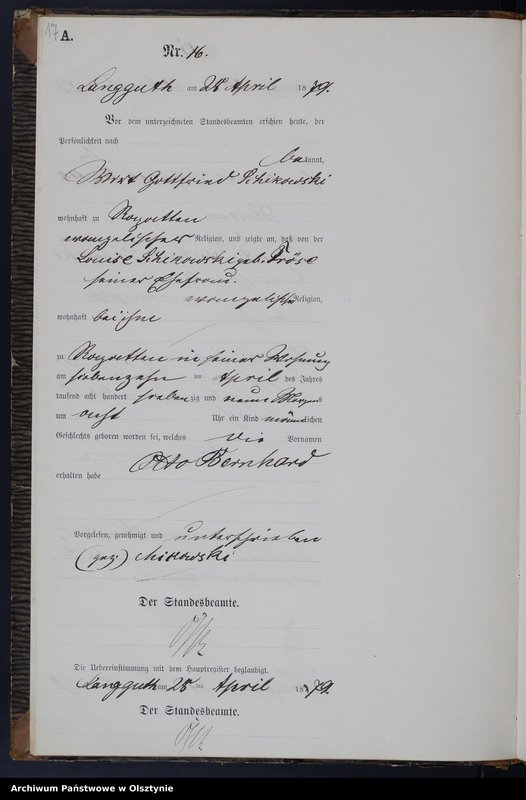 17
A.
Nr. 16.
Langguth am 28 April 1879.
Vor dem unterzeichneten Standesbeamten erschien heute, der
Persönlichkeit nach
bekannt,
Wirt Gottfried Schikowski
wohnhaft zu
evangelischer Religion, und zeigte an, daß von der
Louise Schikowski geb. Fröse
seiner Ehefrau.
evangelische Religion,
wohnhaft bei ihm
zu in seiner Wohnung
am siebenzehn ten April des Jahres
tausend acht hundert siebenzig und neun Morgens
um acht Uhr ein Kind männlichen
Geschlechts geboren worden sei, welches die Vornamen
Otto Bernhard
erhalten habe
Vorgelesen, genehmigt und unterschrieben
(gez.) Schikowski
Der Standesbeamte.
Die Uebereinstimmung mit dem Hauptregister beglaubigt.
Langguth am 28 ten April 1879.
Der Standesbeamte.
Archiwum Państwowe w Olsztynie